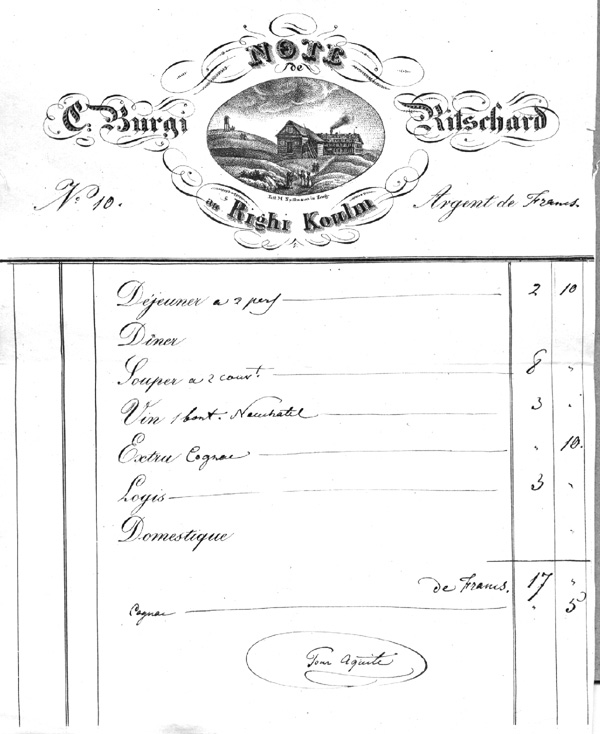 NOTE
de
C. Burgi Ritschard
au Righi Koulm
No. 10. Argent de Francs.
Déjeuner a 2 pers 2 10
Dîner
Souper a 2 couv.t 8 "
Vin 1 bout. Neuchatel 3 "
Extra Cognac " 10.
Logis 3 "
Domestique "
de Francs. 17 "
Cognac " 5
Pour Aquite